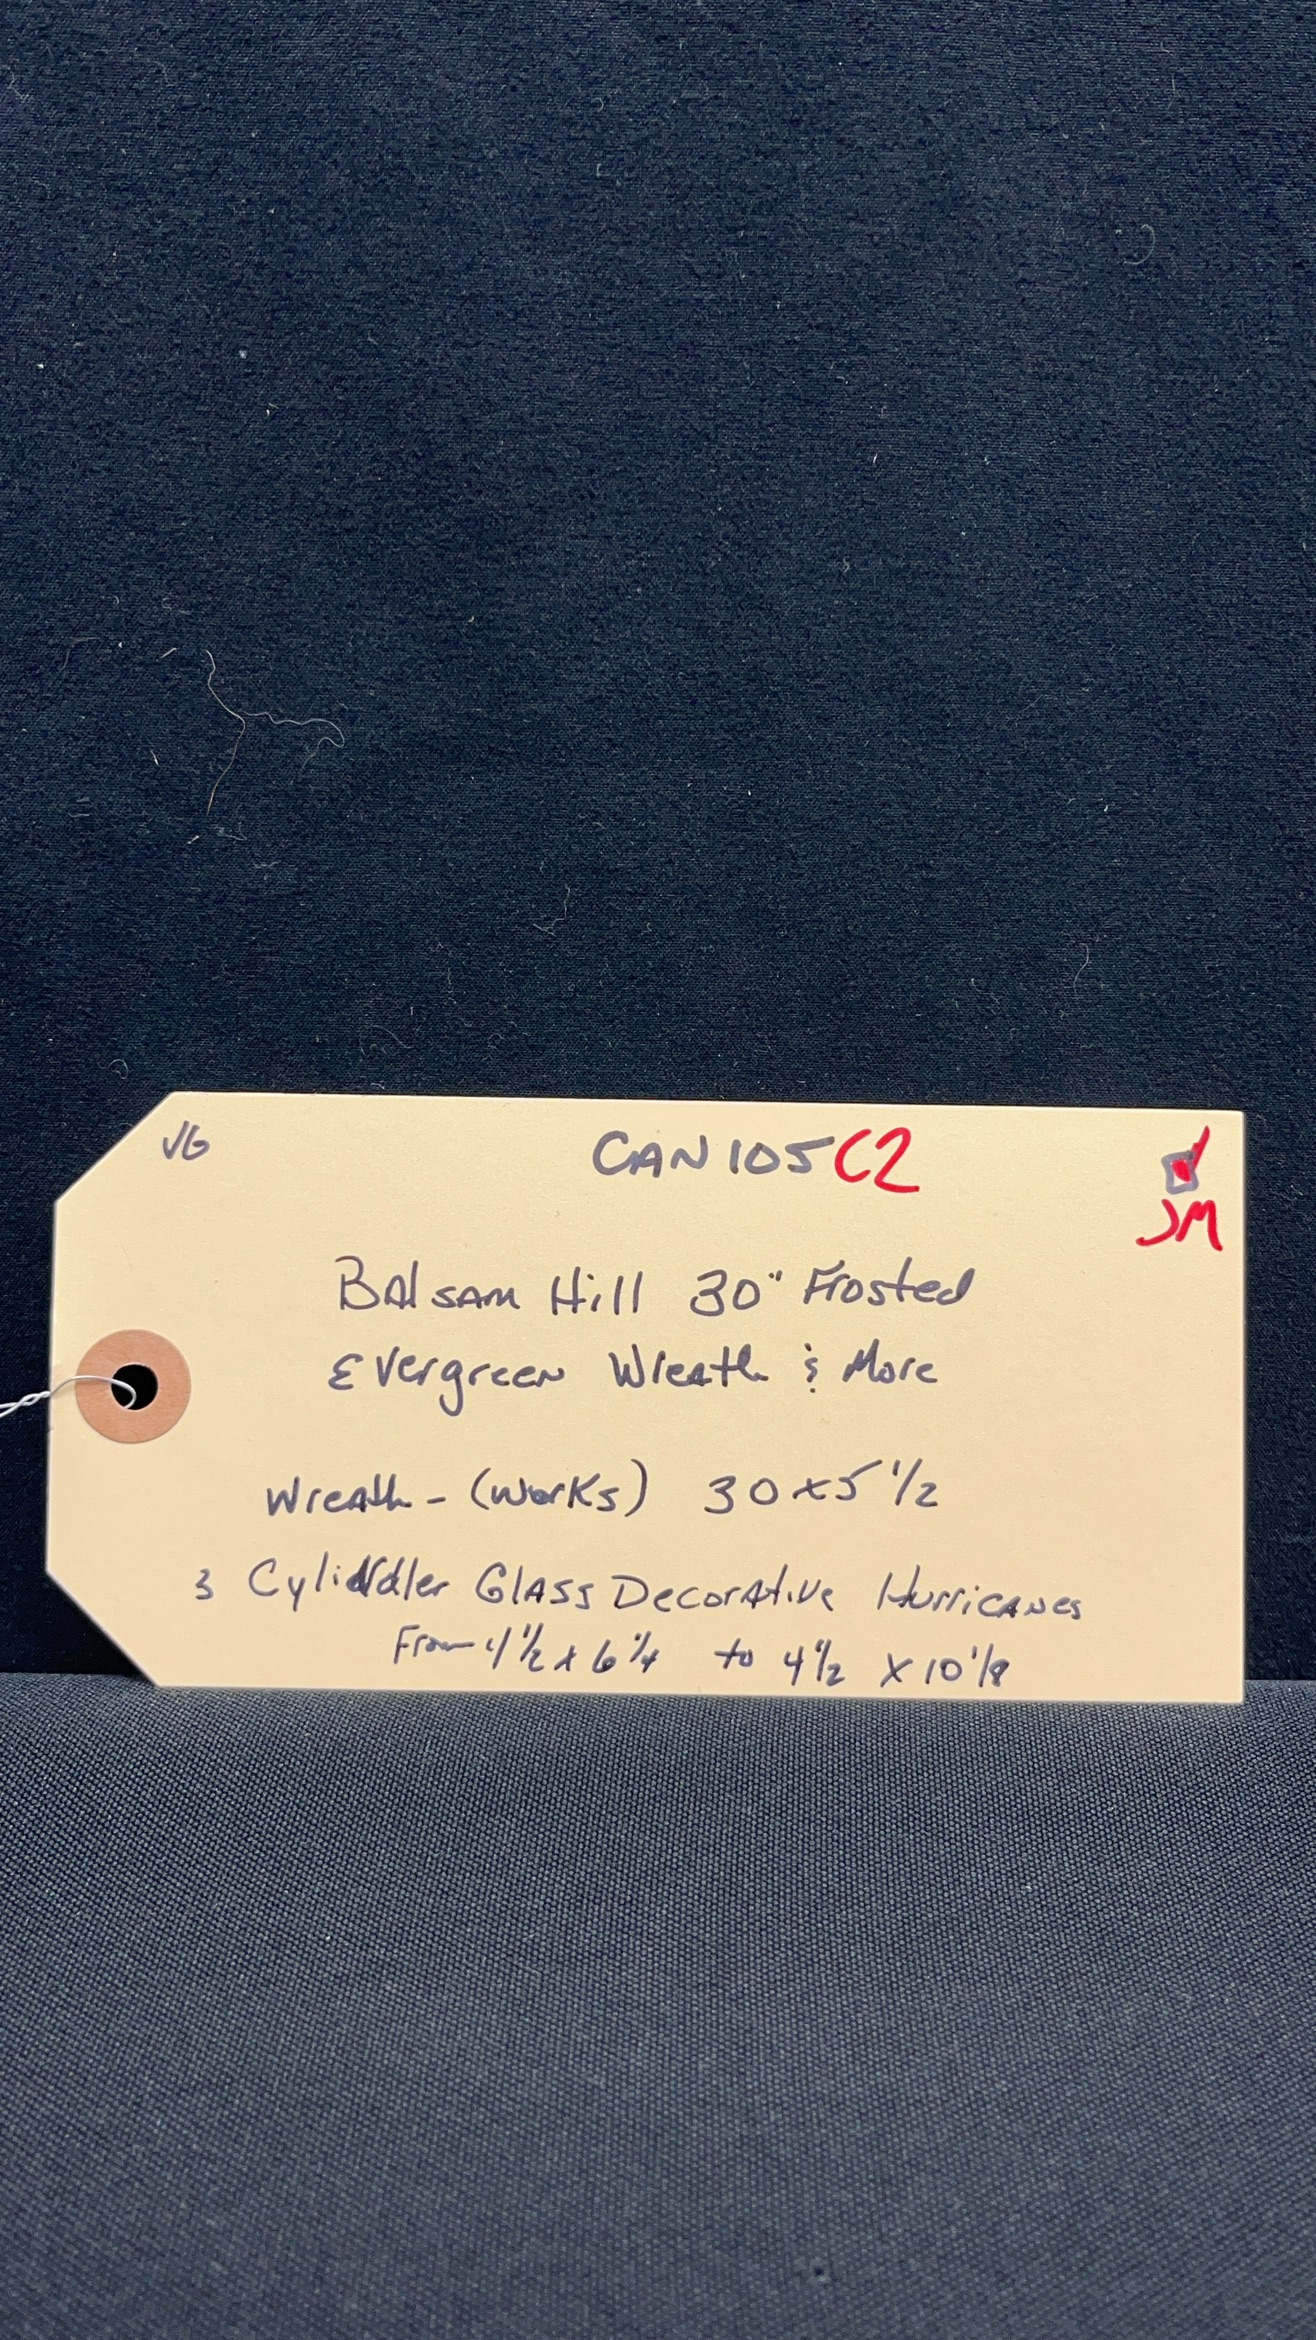 VG
CAN105C2
JM
Balsam Hill 30" Frosted
Evergreen Wreath & More
Wreath - (Works) 30x5 1/2
3 Cylinddler Glass Decorative Hurricanes
From 4 1/2 x 6 1/4 to 4 1/2 x 10 1/8